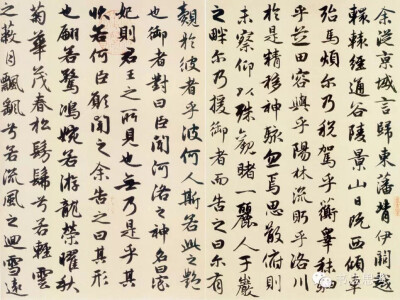 余從京域言歸東藩背伊闕越
轘轅經通谷陵景山日既西傾車
殆馬煩尔乃稅駕乎蘅皋秣駟
乎芝田容與乎陽林流眄乎洛川
於是精移神駭忽焉思散俯則
未察仰以殊觀睹一麗人于巖
之畔尔乃援御者而告之曰尔有
覿於彼者乎彼何人斯若此之艷
也御者對曰臣聞河洛之神名曰宓
妃則君王之所見也無乃是乎其
狀若何臣願聞之余告之曰其形
也翩若驚鴻婉若游龍榮曜秋
菊華茂春松髣髴兮若輕雲
之蔽月飄飄兮若流風之迴雪遠